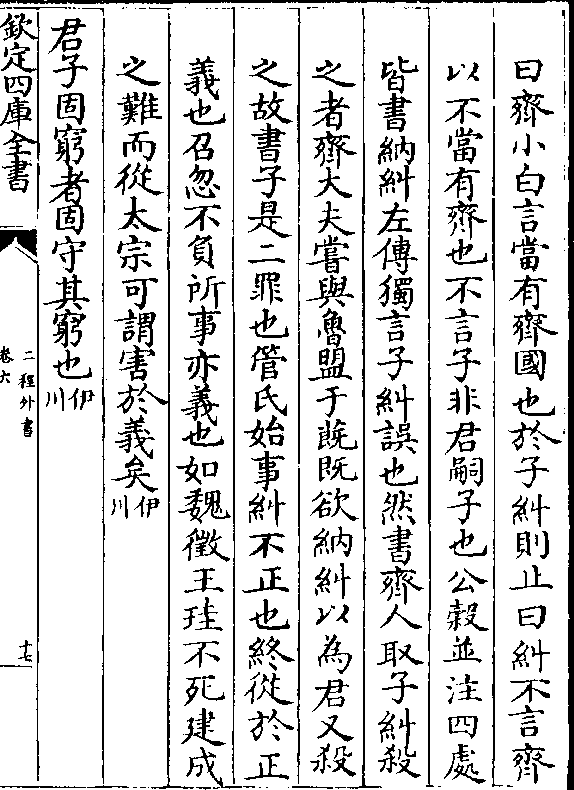 曰齊小白言當有齊國也於子糾則止曰糾不言齊
以不當有齊也不言子非君嗣子也公穀並注四處
皆書納糾左傳獨言子糾誤也然書齊人取子糾殺
之者齊大夫嘗與魯盟于蔇既欲納糾以為君又殺
之故書子是二罪也管氏始事糾不正也終從於正
義也召忽不負所事亦義也如魏徵王珪不死建成
之難而從太宗可謂害於義矣伊川
君子固窮者固守其窮也伊川
欽定四庫全書
二程外書
卷六
十七